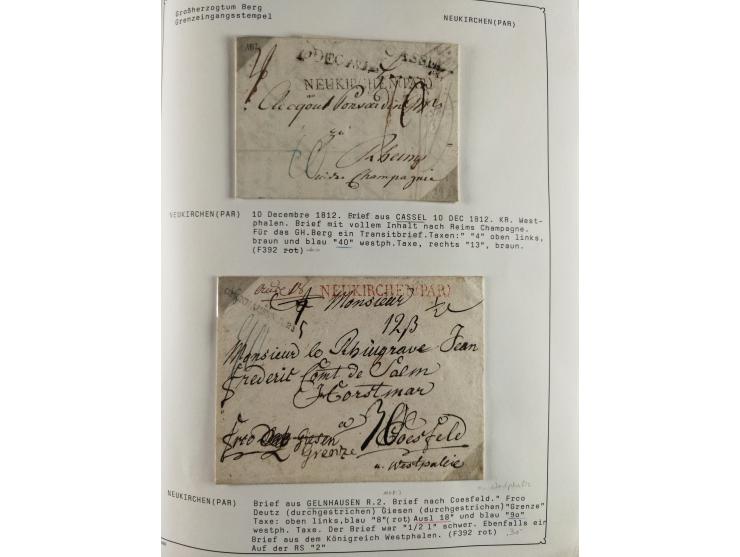 Großherzogtum Berg
Grenzeingangsstempel
NEUKIRCHEN(PAR)
10 DEC 1812 CASSEL
NEUKIRCHEN(PAR)
Clicqout Ponsardin
zu
Rheims
Champagnie
NEUKIRCHEN(PAR) 10 Decembre 1812. Brief aus CASSEL 10 DEC 1812. KR. West-
phalen. Brief mit vollem Inhalt nach Reims Champagne.
Für das GH.Berg ein Transitbrief.Taxen:" "4" oben links,
braun und blau "40" westph.Taxe, rechts "13", braun.
(F392 rot)
NEUKIRCHEN(PAR)
Monsieur
Monsieur le Rhingrave Jean
Frederic Comt de Salm
Horstmar
a
Coesfeld
frco Giesen
Grenze
u. Westpalie
NEUKIRCHEN(PAR) Brief aus GELNHAUSEN R.2. Brief nach Coesfeld." Frco
Deutz (durchgestrichen) Giesen (durchgestrichan)"Grenze"
Taxe: oben links,blau "8"(rot) Ausl 18" und blau "9o"
westph. Taxe. Der Brief war "1/2 l" schwer. Ebenfalls ein
Brief aus dem Königreich Westphalen. (F392 rot) "30"
Auf der RS "2"